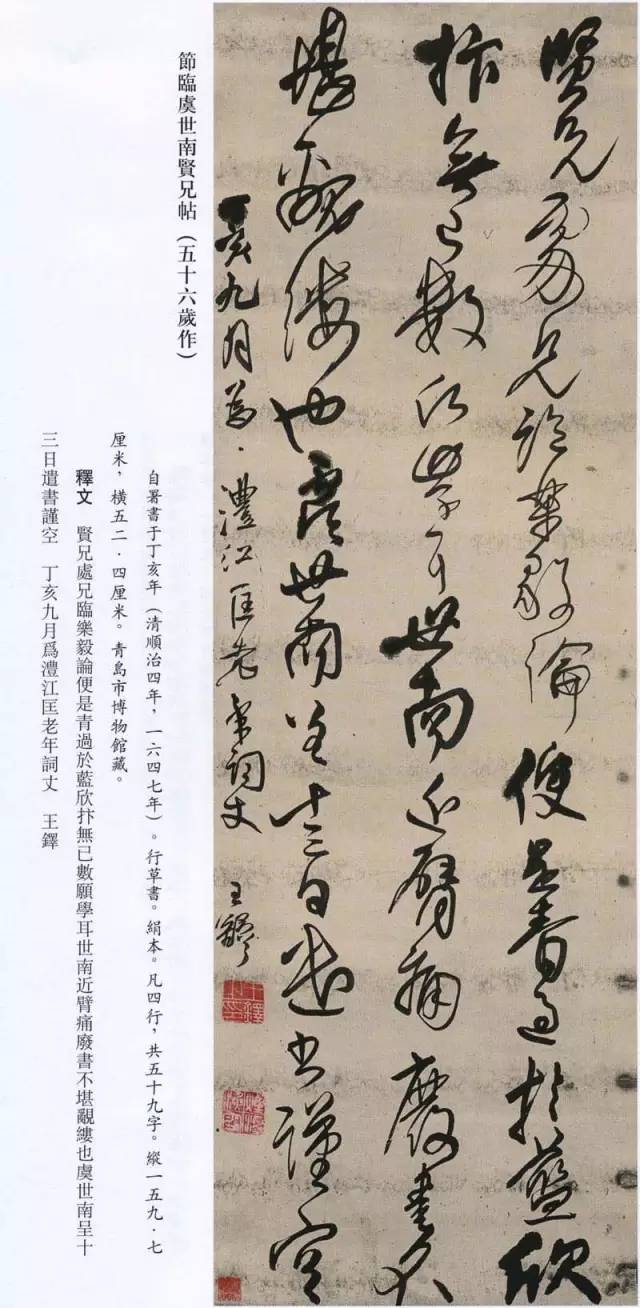 賢兄處兄臨樂毅論便是青過於藍欣
抃無已數願學耳世南近臂痛廢書不
堪覼縷也虞世南呈十三日遣書謹空
丁亥九月為澧江匡老年詞丈 王鐸
節臨虞世南賢兄帖（五十六歲作）
自暑書于丁亥年（清順治四年，一六四七年）。行草書。絹本。凡四行，共五十九字。縱一五九·七
厘米，橫五二·四厘米。青島市博物館藏。
釋文 賢兄處兄臨樂毅論便是青過於藍欣抃無已數願學耳世南近臂痛廢書不堪覼縷也虞世南呈十
三日遣書謹空 丁亥九月爲澧江匡老年詞丈 王鐸